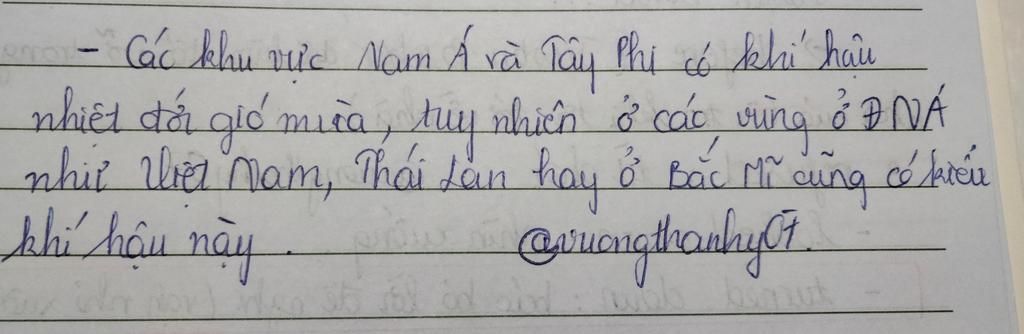 - Các khu vực Nam Á và Tây Phi có khí hậu
nhiệt đới gió mùa, tuy nhiên ở các vùng ở ĐNÁ
như Việt Nam, Thái Lan hay ở Bắc Mĩ cũng có kiểu
khí hậu này. @vuongthanhy07.